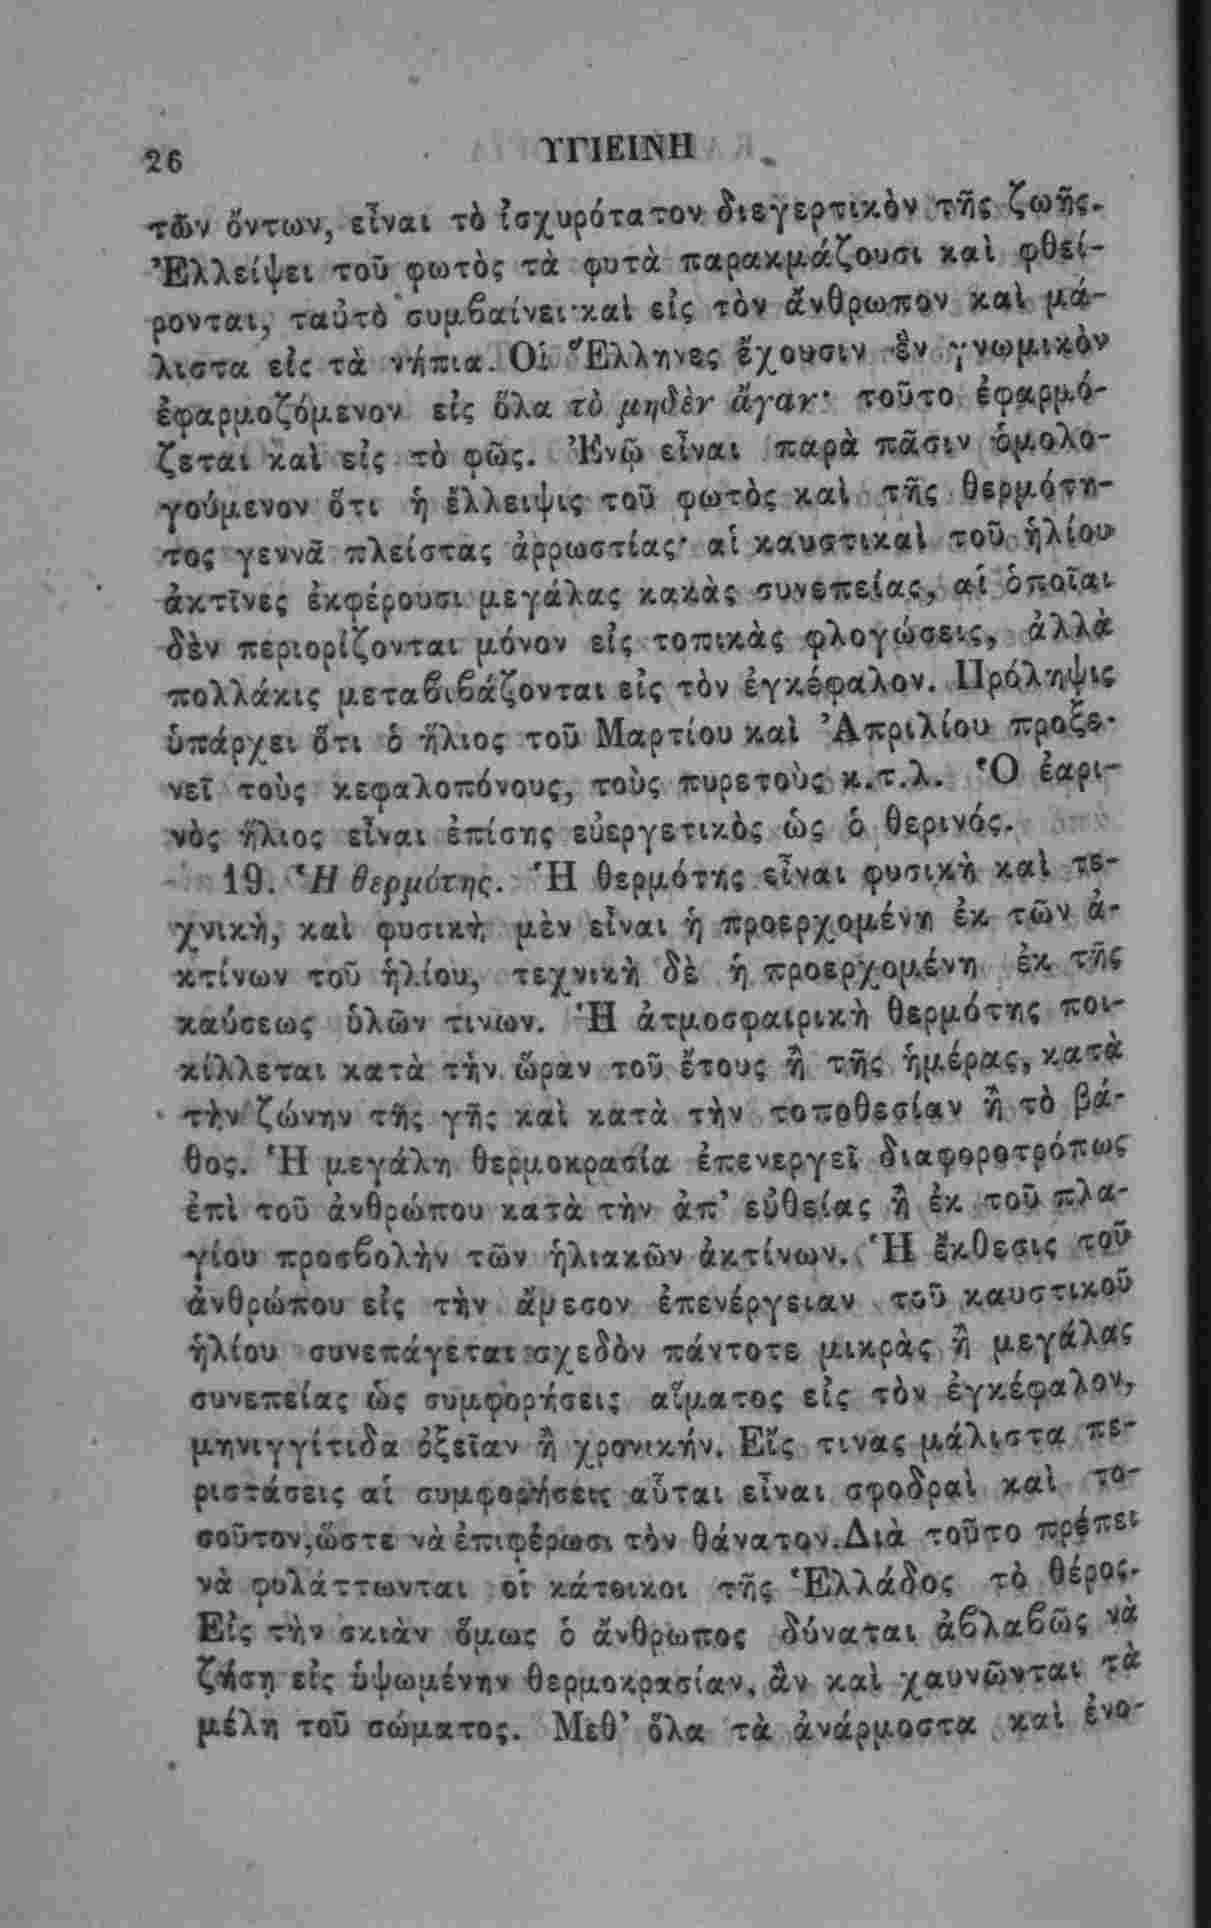 26
ΥΓΙΕΙΝΗ
τῶν ὄντων, εἶναι τὸ ἰσχυρότατον διεγερτικὸν τῆς ζωῆς.
Ἐλλείψει τοῦ φωτὸς τὰ φυτὰ παρακμάζουσι καὶ φθεί-
ρονται, ταὐτὸ συμβαίνει καὶ εἰς τὸν ἄνθρωπον καὶ μά-
λιστα εἰς τὰ νήπια. Οἱ Ἕλληνες ἔχουσιν ἓν γνωμικὸν
ἐφαρμοζόμενον εἰς ὅλα τὸ μηδὲν ἄγαν· τοῦτο ἐφαρμό-
ζεται καὶ εἰς τὸ φῶς. Ἐνῷ εἶναι παρὰ πᾶσιν ὁμολο-
γούμενον ὅτι ἡ ἔλλειψις τοῦ φωτὸς καὶ τῆς θερμότη-
τος γεννᾶ πλείστας ἀρρωστίας· αἱ καυστικαὶ τοῦ ἡλίου
ἀκτῖνες ἐκφέρουσι μεγάλας κακὰς συνεπείας, αἱ ὁποῖαι
δὲν περιορίζονται μόνον εἰς τοπικὰς φλογώσεις, ἀλλὰ
πολλάκις μεταβιβάζονται εἰς τὸν ἐγκέφαλον. Πρόληψις
ὑπάρχει ὅτι ὁ ἥλιος τοῦ Μαρτίου καὶ Ἀπριλίου προξε-
νεῖ τοὺς κεφαλοπόνους, τοὺς πυρετοὺς κ.τ.λ. Ὁ ἐαρι-
νὸς ἥλιος εἶναι ἐπίσης εὐεργετικὸς ὡς ὁ θερινός.
19. Ἡ θερμότης. Ἡ θερμότης εἶναι φυσικὴ καὶ τε-
χνική, καὶ φυσικὴ μὲν εἶναι ἡ προερχομένη ἐκ τῶν ἀ-
κτίνων τοῦ ἡλίου, τεχνικὴ δὲ ἡ προερχομένη ἐκ τῆς
καύσεως ὑλῶν τινων. Ἡ ἀτμοσφαιρικὴ θερμότης ποι-
κίλλεται κατὰ τὴν ὥραν τοῦ ἔτους ἢ τῆς ἡμέρας, κατὰ
τὴν ζώνην τῆς γῆς καὶ κατὰ τὴν τοποθεσίαν ἢ τὸ βά-
θος. Ἡ μεγάλη θερμοκρασία ἐπενεργεῖ διαφοροτρόπως
ἐπὶ τοῦ ἀνθρώπου κατὰ τὴν ἀπ' εὐθείας ἢ ἐκ τοῦ πλα-
γίου προσβολὴν τῶν ἡλιακῶν ἀκτίνων. Ἡ ἔκθεσις τοῦ
ἀνθρώπου εἰς τὴν ἄμεσον ἐπενέργειαν τοῦ καυστικοῦ
ἡλίου συνεπάγεται σχεδὸν πάντοτε μικρὰς ἢ μεγάλας
συνεπείας ὡς συμφορήσεις αἵματος εἰς τὸν ἐγκέφαλον,
μηνιγγίτιδα ὀξεῖαν ἢ χρονικήν. Εἴς τινας μάλιστα πε-
ριστάσεις αἱ συμφορήσεις αὗται εἶναι σφοδραὶ καὶ το-
σοῦτον, ὥστε νὰ ἐπιφέρωσι τὸν θάνατον. Διὰ τοῦτο πρέπει
νὰ φυλάττωνται οἱ κάτοικοι τῆς Ἑλλάδος τὸ θέρος.
Εἰς τὴν σκιὰν ὅμως ὁ ἄνθρωπος δύναται ἀβλαβῶς νὰ
ζήσῃ εἰς ὑψωμένην θερμοκρασίαν, ἂν καὶ χαυνῶνται τὰ
μέλη τοῦ σώματος. Μεθ' ὅλα τὰ ἀνάρμοστα καὶ ἐνο-